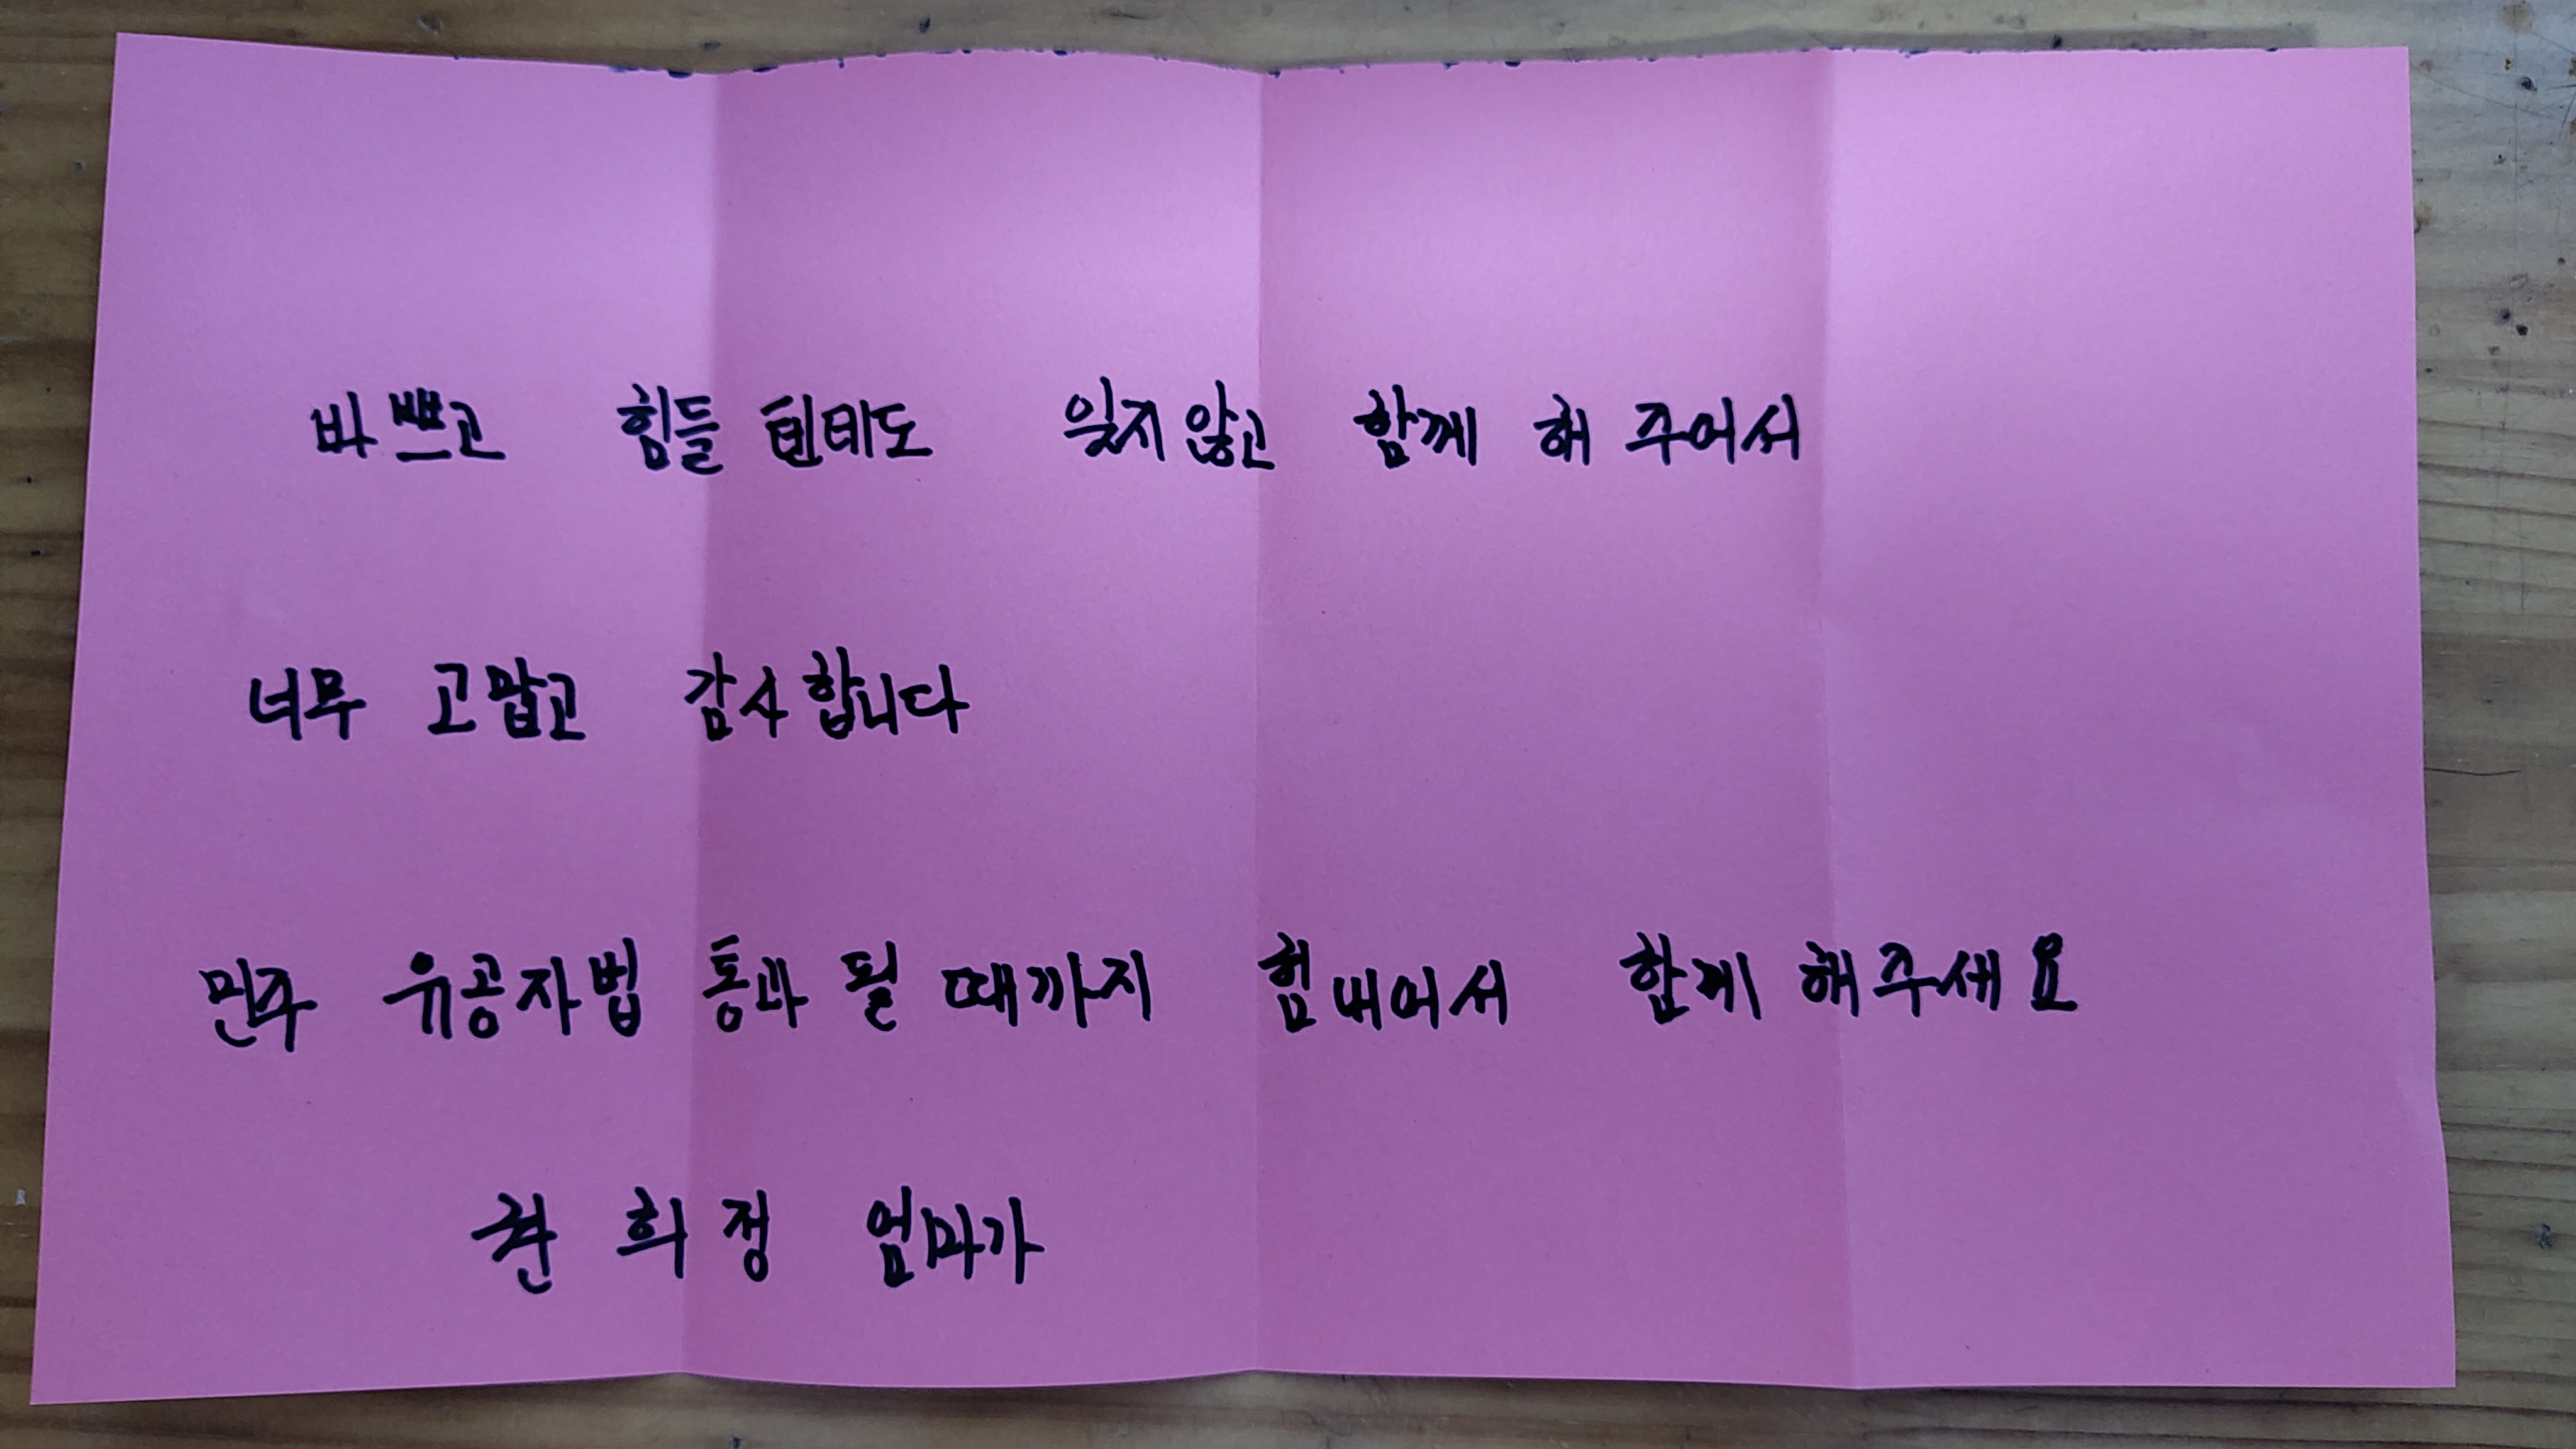 바쁘고 힘들 텐데도 잊지 않고 함께 해 주어서
너무 고맙고 감사합니다
민주 유공자법 통과 될 때까지 힘내어서 함께 해주세요
권 희 정 엄마가